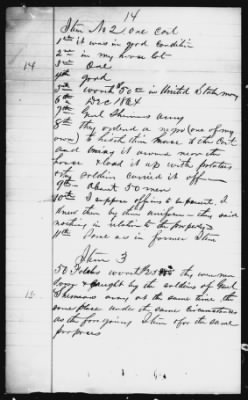 14
Item No 2, One Cart
14
1st it was in good condition
2nd in my horse lot
3rd One
4th good
5th worth $50 00 in United States money
6th Dec 1864
7th Genl Shermans army
8th they ordered a negro (one of my
own) to hitch the horse to the Cart
and bring it around near the
house & load it up with potatoes
the soldiers carried it off
9th About 50 men
10th I suppose officers were present I
knew them by their uniform - they said
nothing in relation to the property
11th Done as in former Item
Item 3
15
50 Fodder worth $25 00 this was
& caught by the soldiers of Genl
Shermans army at the same time, the
same place under the same circumstances
as the foregoing Item & for the same
purposes